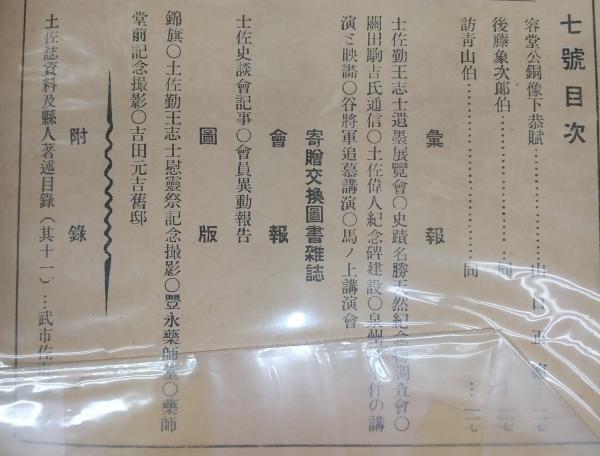 七號目次
容堂公銅像下恭賦……………山口正
後藤象次郎伯……………同…二七
訪靑山伯……………同…二七
彙報
土佐勤王志士遺墨展覽會○史蹟名勝天然紀念物調査會○
關田駒吉氏通信○土佐偉人紀念碑建設○泉州事件の講
演ミ映畵○谷將軍追慕講演○馬ノ上講演會
寄贈交換圖書雜誌
會報
土佐史談會記事○會員異動報告
圖版
錦旗○土佐勤王志士慰靈祭記念撮影○豐永藥師堂○藥師
堂前記念撮影○吉田元吉舊邸
附錄
土佐誌資料及縣人著述目錄(其十一)…武市佐